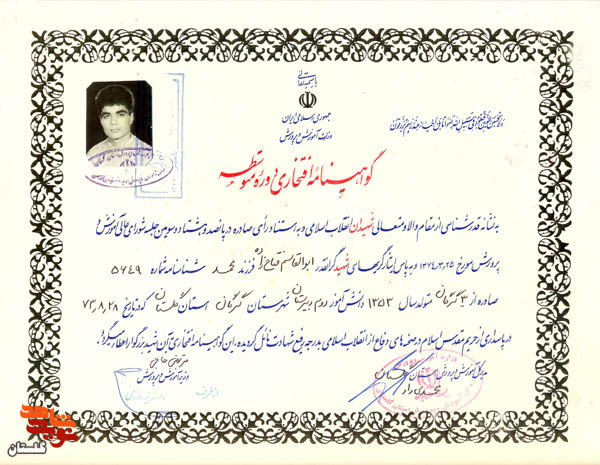 باسمه تعالی
جمهوری اسلامی ایران
وزارت آموزش و پرورش
گواهینامه افتخاری دوره متوسطه
به نشانه قدرشناسی از مقام والا و متعالی شهیدان انقلاب اسلامی و به استناد رأی صادره در پانصد و هشتاد و سومین جلسه شورای عالی آموزش و
پرورش مورخ ۱۳۷۴,۳,۲۵ و به پاس ایثارگریهای شهید گرانقدر ابوالقاسم فتاح زاده فرزند محمد شناسنامه شماره ۵۶۴۹
صادره از ۳ گرگان متولد سال ۱۳۵۳ دانش آموز دوم دبیرستان شهرستان گرگان استان گلستان که در تاریخ ۷۳,۸,۲۸
در پاسداری از حریم مقدس اسلام در صحنه های دفاع از انقلاب اسلامی به درجه رفیع شهادت نائل گردیده، این گواهینامه افتخاری به آن شهید بزرگوار اعطا میگردد.
وزیر آموزش و پرورش
مدیر کل آموزش و پرورش استان گلستان
نوید شاهد
گلستان